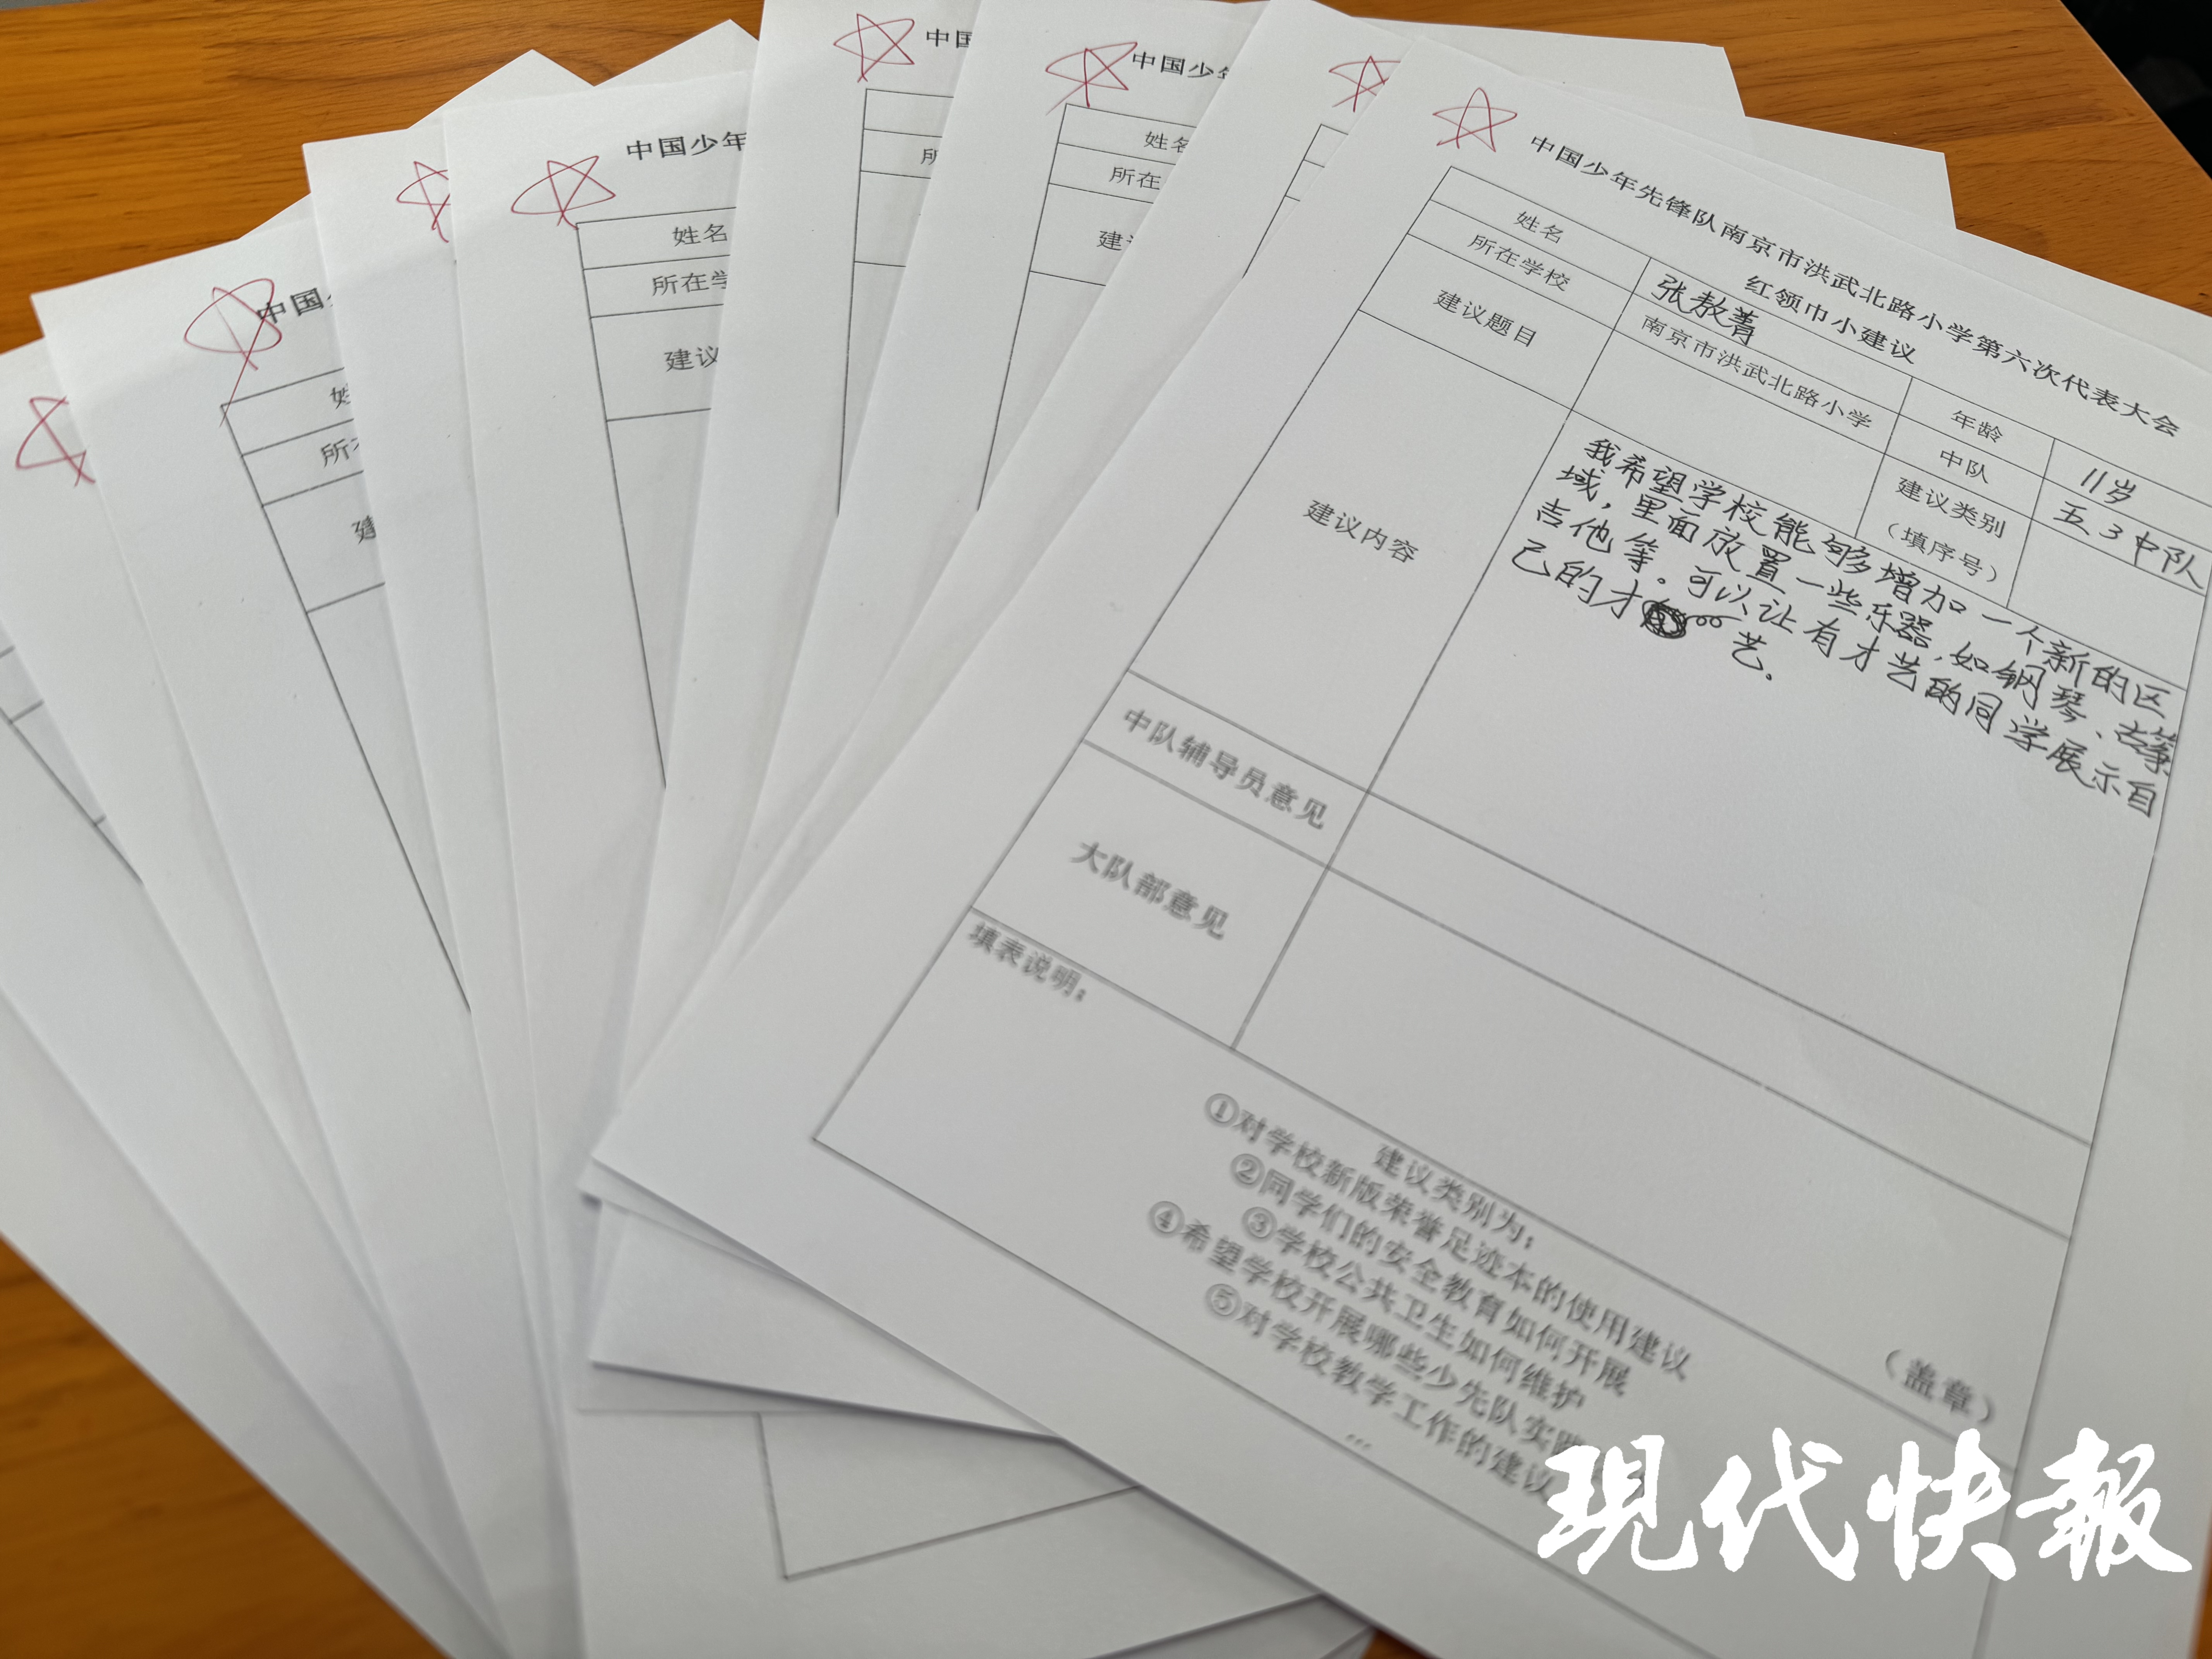 中国少年先锋队南京市洪武北路小学第六次代表大会
红领巾小建议
姓名
张敖菁
年龄
11岁
所在学校
南京市洪武北路小学
中队
五、3中队
建议题目
建议类别
（填序号）
建议内容
我希望学校能够增加一个新的区
域，里面放置一些乐器，如钢琴、古筝
吉他等。可以让有才艺的同学展示自
己的才艺。
中队辅导员意见
大队部意见
（盖章）
填表说明：
建议类别为：
①对学校新版荣誉足迹本的使用建议
②同学们的安全教育如何开展
③学校公共卫生如何维护
④希望学校开展哪些少先队实践
⑤对学校教学工作的建议
...
中国
中国少
姓名
所在
建议
中国少年
姓名
所在学
建议
中国
所
现代快報